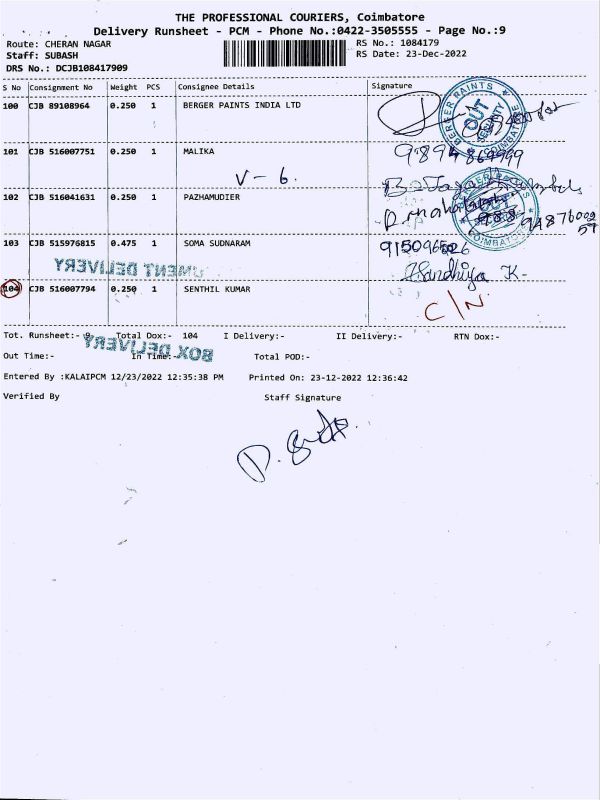 THE PROFESSIONAL COURIERS, Coimbatore
Delivery Runsheet - PCM - Phone No.:0422-3505555 - Page No.:9
Route: CHERAN NAGAR
RS No.: 1084179
Staff: SUBASH
RS Date: 23-Dec-2022
DRS No.: DCJB108417909
S No Consignment No Weight PCS Consignee Details Signature
100 CJB 89108964 0.250 1 BERGER PAINTS INDIA LTD
BERGER PAINTS
OUT
SECURITY
COIMBATORE
101 CJB 516007751 0.250 1 MALIKA
V - 6.
102 CJB 516041631 0.250 1 PAZHAMUDIER
BERGER PAINTS
OUT
COIMBATORE
103 CJB 515976815 0.475 1 SOMA SUDNARAM
DOCUMENT DELIVERY
Sandhiya K-
104 CJB 516007794 0.250 1 SENTHIL KUMAR
C/N.
Tot. Runsheet:- 9 Total Dox:- 104 I Delivery:- II Delivery:- RTN Dox:-
BOX DELIVERY
Out Time:- In Time:- Total POD:-
Entered By :KALAIPCM 12/23/2022 12:35:38 PM Printed On: 23-12-2022 12:36:42
Verified By Staff Signature